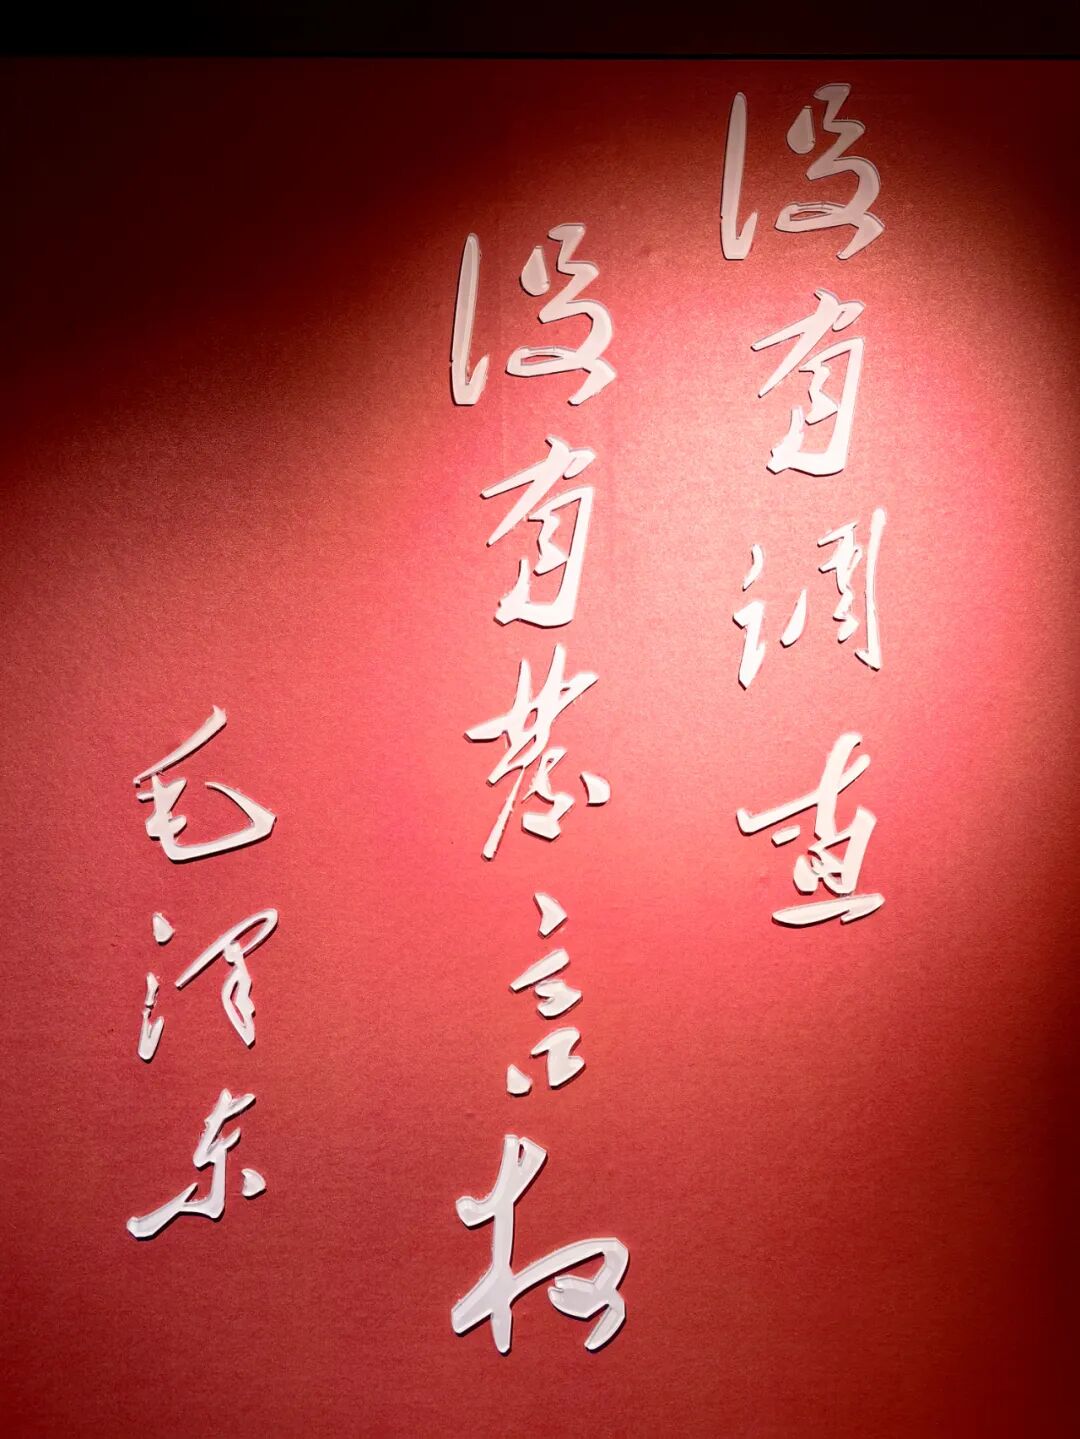 没有调查
没有发言权
毛泽东